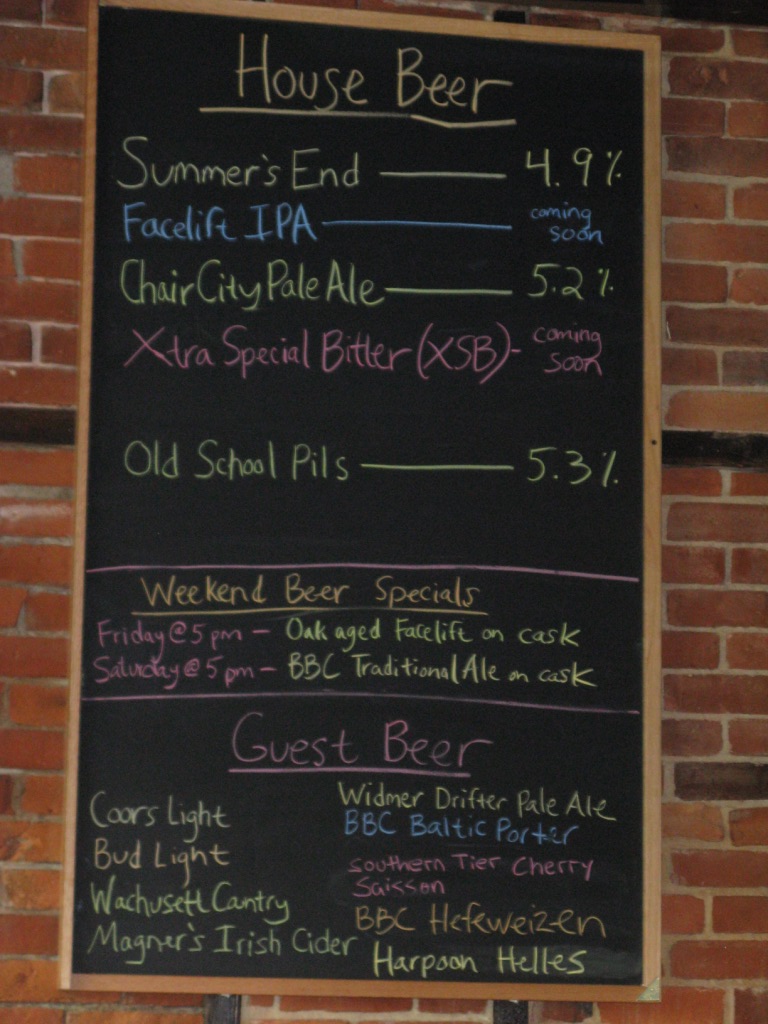 House Beer
Summer's End — 4.9%
Facelift IPA — coming soon
Chair City Pale Ale — 5.2%
Xtra Special Bitter (XSB) - coming soon
Old School Pils — 5.3%
Weekend Beer Specials
Friday @ 5 pm - Oak aged Facelift on cask
Saturday @ 5 pm - BBC Traditional Ale on cask
Guest Beer
Coors Light
Bud Light
Wachusett Cantry
Magner's Irish Cider
Widmer Drifter Pale Ale
BBC Baltic Porter
Southern Tier Cherry
Saisson
BBC Hefeweizen
Harpoon Helles